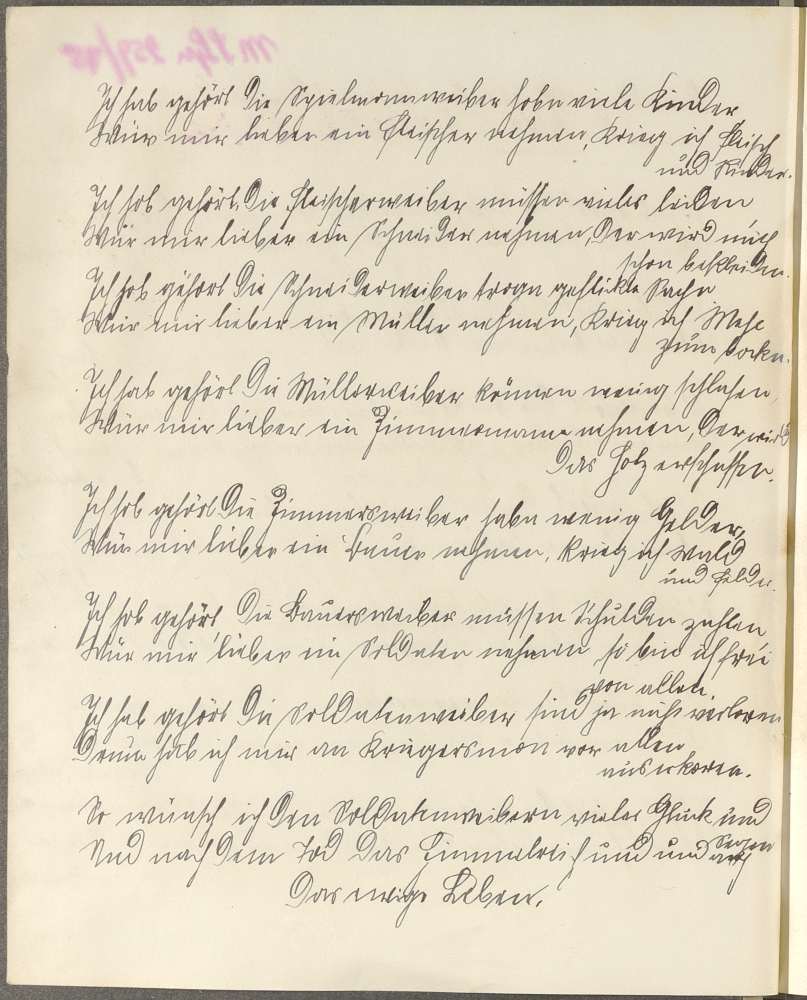 Ich hab gehört die Spielmannweiber habn viele Kinder
Wür mir lieber ein Fleischer nehmen, Krieg ich Fleisch
und Kinder.
Ich hob gehört die Fleischerweiber müssen vieles leiden
Wür mir lieber ein Schneider nehmen, der wird mich
schon bekleiden.
Ich hob gehört die Schneiderweiber tragn geflickte Sachn
Wür mir lieber ein Müller nehmen, Krieg ich Mehl
zum backn.
Ich hab gehört die Müllerweiber können wenig schlafen,
Wür mir lieber ein Zimmermann nehmen, der wird
das Holz erschaffen.
Ich hob gehört die Zimmersweiber habn wenig Gelder,
Wür mir lieber ein Bauer nehmen, krieg ich Wald
und Felder.
Ich hob gehört die Bauersweiber müssen Schulden zahlen
Wür mir lieber ein Soldaten nehmen, so bin ich frei
von allen.
Ich hab gehört die Soldatenweiber sind ja nichts verloren
Drum hab ich mir an Kriegersman vor allen
auserkoren.
So wünsch ich den Soldatenweibern vieles Glück und
Segen
Und nach dem Tod das Himmelreich und und auch
Das ewige Leben.